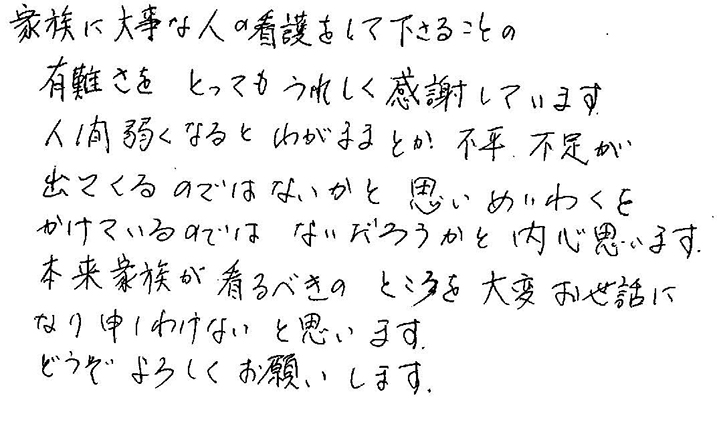 家族に大事な人の看護をして下さることの
有難さを とってもうれしく感謝しています
人間弱くなると わがままとか 不平.不足が
出てくるのではないかと 思い めいわくを
かけているのでは ないだろうかと 内心思います.
本来家族が 看るべきの ところを 大変 お世話に
なり 申しわけない と思います.
どうぞ よろしく お願いします.